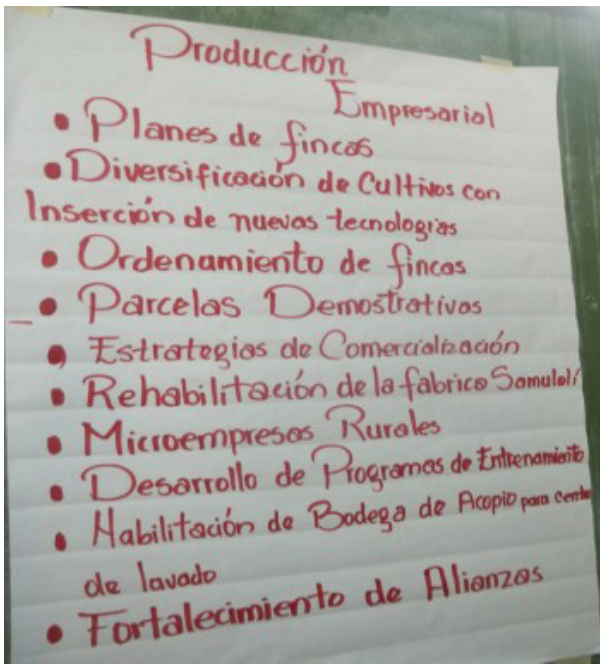 Producción
Empresarial
• Planes de fincas
• Diversificación de Cultivos con
Inserción de nuevas tecnologias
• Ordenamiento de fincas
• Parcelas Demostrativas
• Estrategias de Comercialización
• Rehabilitación de la fabrica Samulalí
• Microempresas Rurales
• Desarrollo de Programas de Entrenamiento
• Habilitación de Bodega de Acopio para
de lavado
• Fortalecimiento de Alianzas